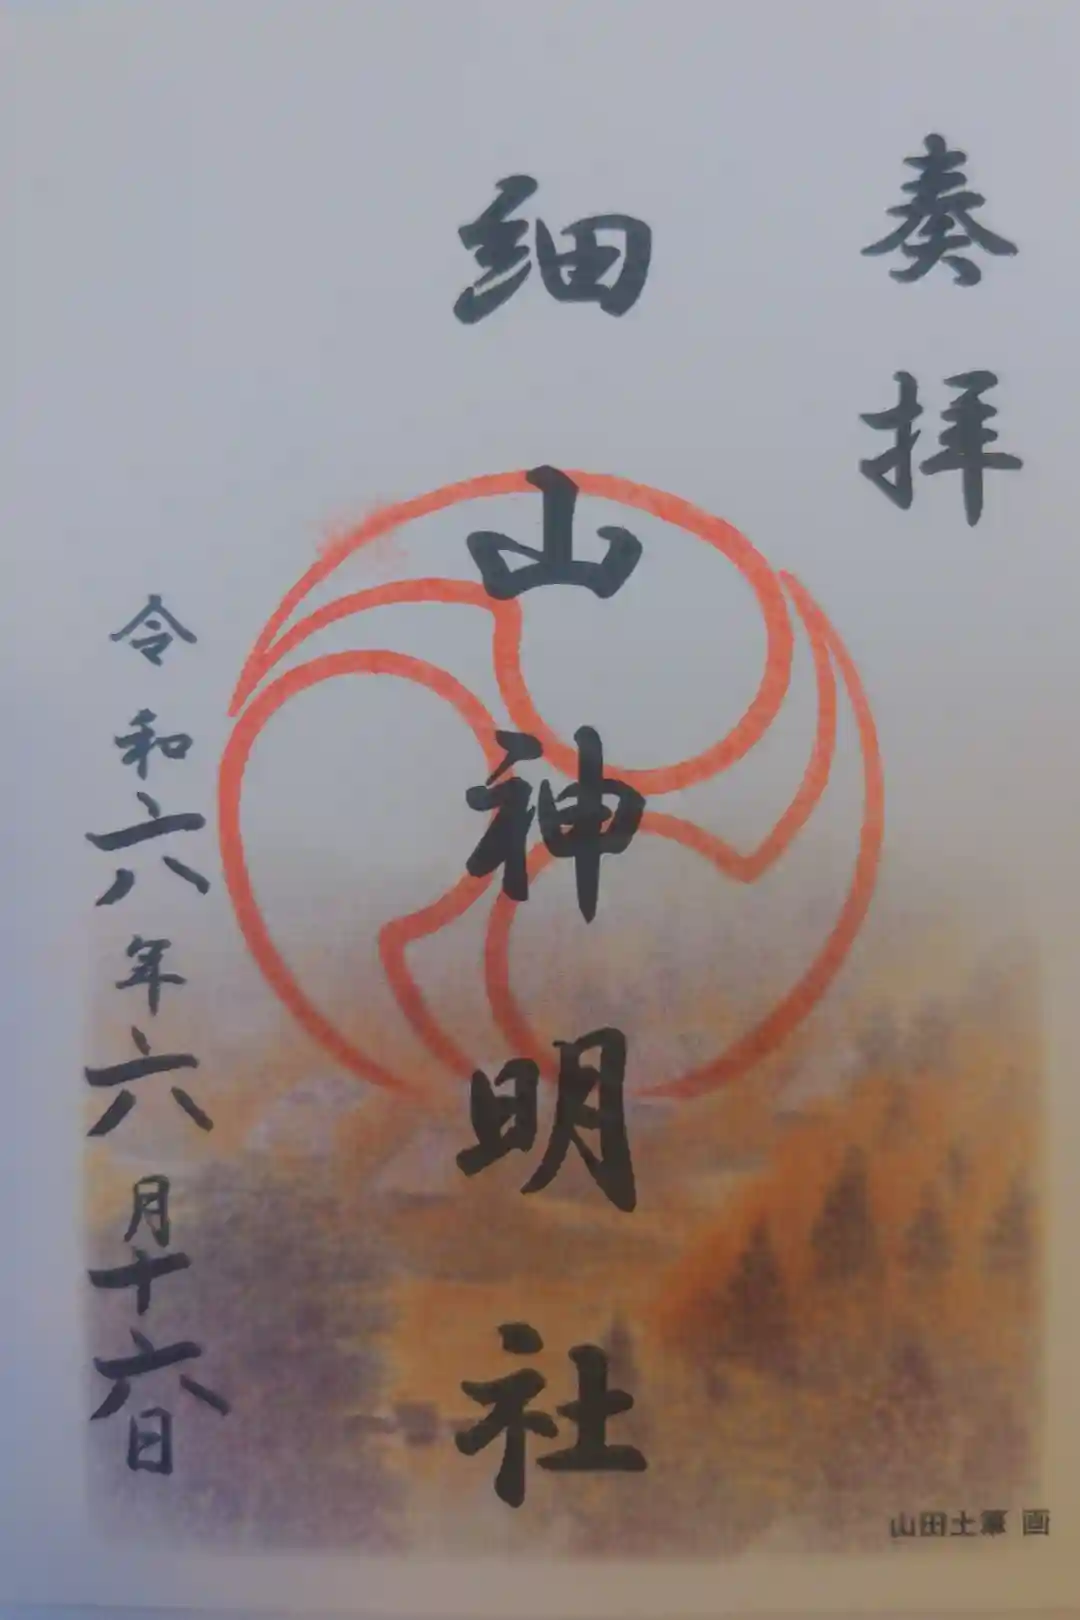 奏拝
細山神明社
令和六年六月十六日
山田土筆 画